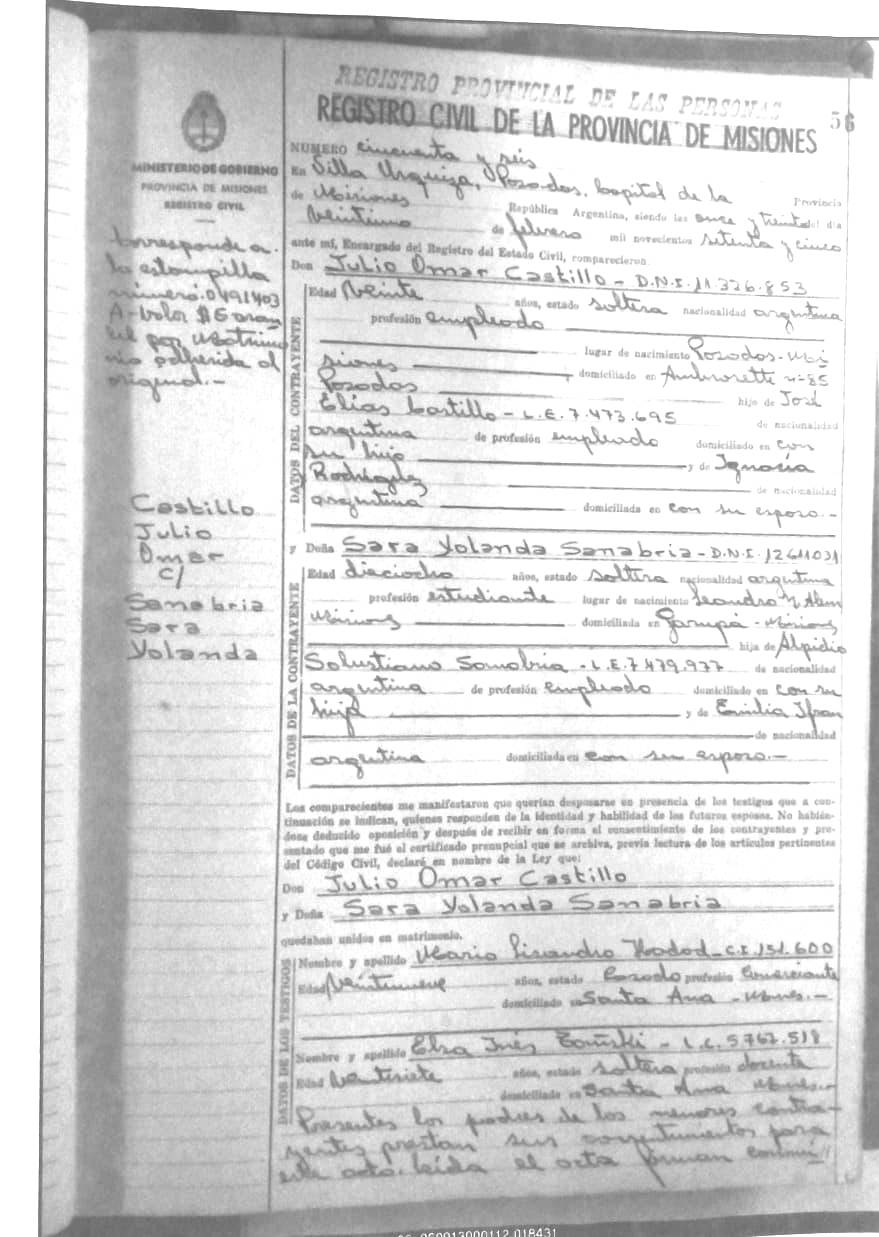 REGISTRO PROVINCIAL DE LAS PERSONAS
REGISTRO CIVIL DE LA PROVINCIA DE MISIONES
56
MINISTERIO DE GOBIERNO
PROVINCIA DE MISIONES
REGISTRO CIVIL
Corresponde a
la estampilla
número: 0491403
A- Valor $ 6 aran
cel por Matrimo
nio adherida al
original.-
Castillo
Julio
Omar
c/
Sanabria
Sara
Yolanda
NUMERO cincuenta y seis
En Villa Urquiza, Posadas, Capital de la Provincia
de Misiones República Argentina, siendo las once y treinta del día
veintiuno de febrero mil novecientos setenta y cinco
ante mí, Encargado del Registro del Estado Civil, comparecieron
Don Julio Omar Castillo - D.N.I. 11.326.853
DATOS DEL CONTRAYENTE
Edad veinte años, estado soltero nacionalidad argentina
profesión empleado
lugar de nacimiento Posadas - Mi
siones domiciliado en Ambrosetti n- 85
Posadas hijo de José
Elías Castillo - L.E. 7.473.695 de nacionalidad
argentina de profesión empleado domiciliado en con
su hijo y de Ignacia
Rodríguez de nacionalidad
argentina domiciliada en con su esposo.-
y Doña Sara Yolanda Sanabria - D.N.I. 12611031
DATOS DE LA CONTRAYENTE
Edad dieciocho años, estado soltera nacionalidad argentina
profesión estudiante lugar de nacimiento Leandro N. Alem
Misiones domiciliada en Garupa - Misiones
hija de Alpidio
Solustiano Sanabria - L.E. 7.479.977 de nacionalidad
argentina de profesión empleado domiciliado en con su
hija y de Emilia Ifran
de nacionalidad
argentina domiciliada en con su esposo.-
Los comparecientes me manifestaron que querían desposarse en presencia de los testigos que a con-
tinuación se indican, quienes responden de la identidad y habilidad de los futuros esposos. No habién-
dose deducido oposición y después de recibir en forma el consentimiento de los contrayentes y pre-
sentado que me fué el certificado prenupcial que se archiva, previa lectura de los artículos pertinentes
del Código Civil, declaré en nombre de la Ley que:
Don Julio Omar Castillo
y Doña Sara Yolanda Sanabria
quedaban unidos en matrimonio.
DATOS DE LOS TESTIGOS
Nombre y apellido Mario Lisandro Hadod - C.I. 151.600
Edad veintinueve años, estado casado profesión comerciante
domiciliado en Santa Ana - Mnes.-
Nombre y apellido Elsa Inés - L.C. 5.762.518
Edad veintisiete años, estado soltera profesión docente
domiciliado en Santa Ana Mnes.-
Presentes los padres de los menores contra-
yentes prestan sus consentimientos para
este acto. Leída el acta firman conmi//